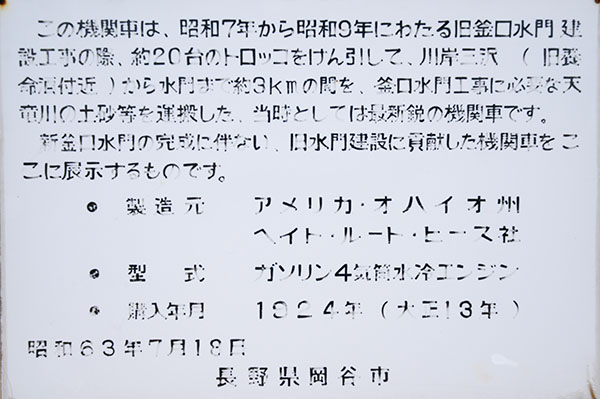 この機関車は、昭和7年から昭和9年にわたる旧釜口水門建
設工事の際、約20台のトロッコをけん引して、川岸三沢（旧養
命酒付近）から水門まで約3kmの間を、釜口水門工事に必要な天
竜川の土砂等を運搬した、当時としては最新鋭の機関車です。
新釜口水門の完成に伴ない、旧水門建設に貢献した機関車をこ
こに展示するものです。
● 製造元 アメリカ・オハイオ州
ヘイト・ルート・ヒース社
● 型式 ガソリン4気筒水冷エンジン
● 購入年月 1924年（大正13年）
昭和63年7月18日
長野県岡谷市